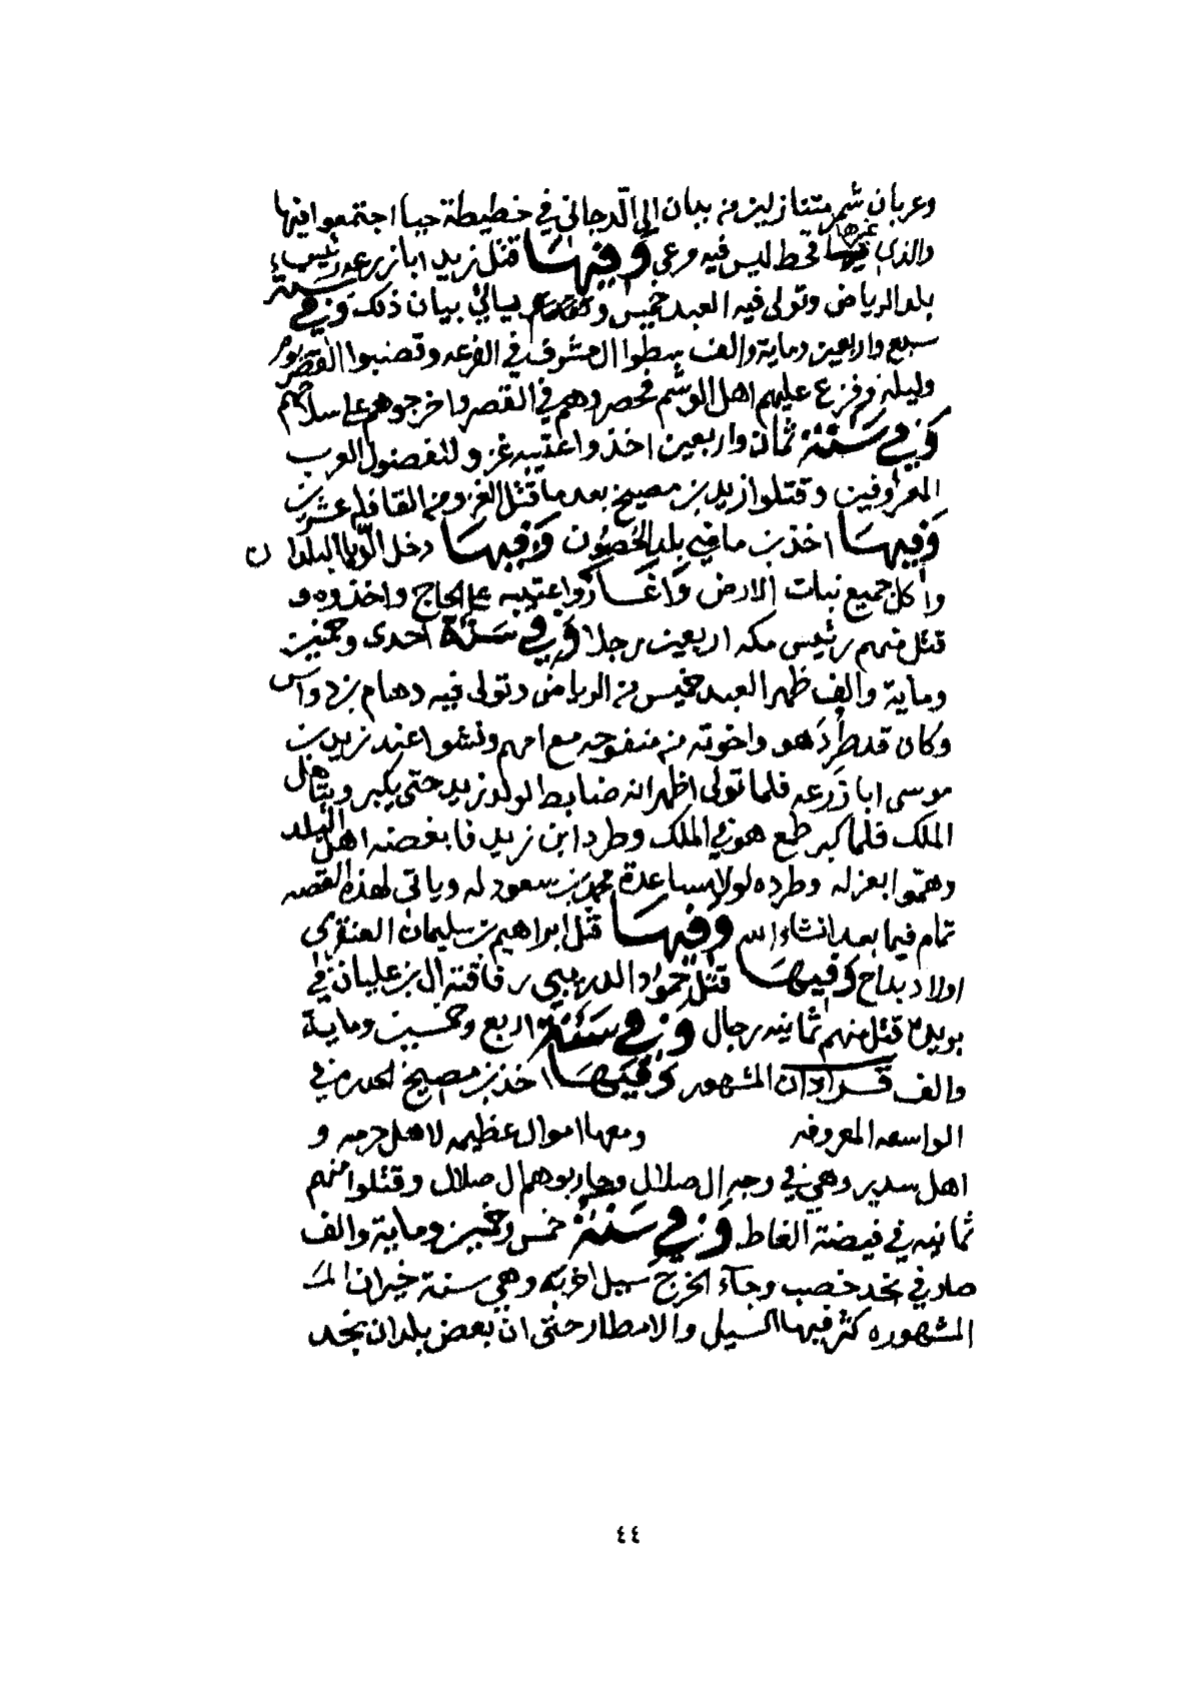 وعربان شمر متنازلين من ببان الى الدجاني في خطيطة حيا اجتمعوا فيها
والذي غيرها قحط ليس فيه مرعى وفيها قتل زيد ابا زرعه رئيس
بلد الرياض وتولى فيه العبد خميس و سيأتي بيان ذلك وفي سنة
سبع واربعين وماية والف سطوا العشوف في الفرعه وقضبوا القصر يوم
وليله وفزع عليهم اهل الوشم فحصروهم في القصر واخرجوهم على سلاحهم
وفي سنة ثمان واربعين اخذوا عتيبه غزو للفضول العرب
المعروفين وقتلوا زيد بن مصيخ بعد ما قتل الغزو من القافله عشرين
وفيها اخذ بن ماضي بلد الحصون وفيها دخل الدبا البلدان
واكل جميع نبات الارض واغاروا عتيبه على الحاج واخذوه و
قتل منهم رئيس مكه اربعين رجلا وفي سنة احدى وخمسين
وماية والف ظهر العبد خميس من الرياض وتولى فيه دهام بن دواس
وكان قد طرد هو واخوته من منفوحه مع امهم ونشوا عند زيد بن
موسى ابا زرعه فلما تولى اظهر انه ضابط لولد زيد حتى يكبر ويتاهل
الملك فلما كبر طمع هو في الملك وطرد ابن زيد فابغضه اهل البلد
وهموا بعزله وطرده لولا مساعدة محمد بن سعود له وياتي لهذه القصه
تمام فيما بعد انشاء الله وفيها قتل ابراهيم بن سليمان العنقري
اولاد بداح وفيها قتل حمود الدريبي رفاقته ال بن عليان في
بريده قتل منهم ثمانيه رجال وفي سنة اربع وخمسين وماية
والف قرادان المشهور وفيها اخذ بن مصيخ الحدره في
الواسعه المعروفه ومعها اموال عظيمه لاهل حرمه و
اهل سدير وهي في وجه ال صلال وحاربوهم ال صلال وقتلوا منهم
ثمانيه في فيضة الغاط وفي سنة خمس وخمسين وماية والف
صار في نجد خصب وجآء الخرج سيل اخربه وهي سنة خيران
المشهوره كثر فيها السيل والامطار حتى ان بعض بلدان نجد
٤٤